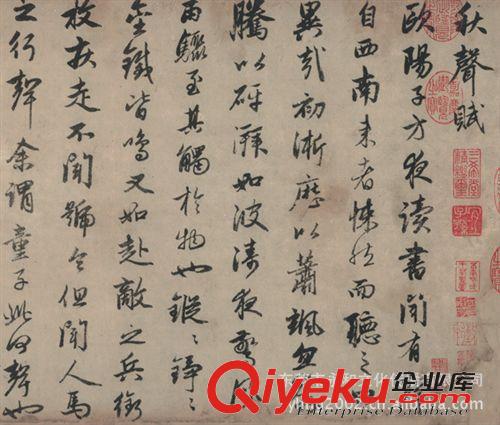 秋聲賦
歐陽子方夜讀書聞有
自西南来者悚然而聽之曰
異哉初淅瀝以蕭颯忽
騰以砰湃如波濤夜驚風
雨驟至其觸於物也鏦〻錚〻
金鐵皆鳴又如赴敵之兵銜
枚疾走不聞號令但聞人馬
之行聲余謂童子此何聲也
Qiyeku.com 企业库
Enterprise Database